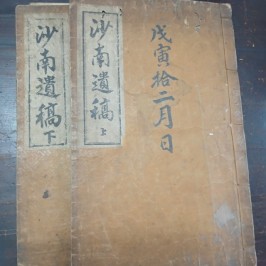 沙南遺稿
上
戊寅拾二月日
沙南遺稿
下